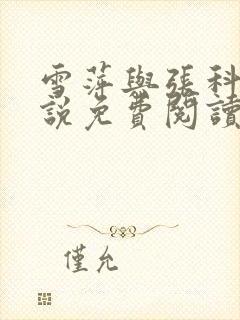 雪萍與張科
說免費閱讀
僅允